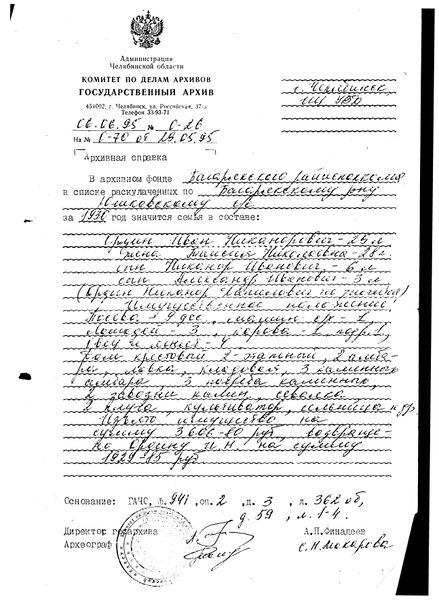 Администрация
Челябинской области
КОМИТЕТ ПО ДЕЛАМ АРХИВОВ
ГОСУДАРСТВЕННЫЙ АРХИВ
454092, г. Челябинск, ул. Российская, 37-а
Телефон 33-93-71
г. Челябинск
06.06.95 № О-26
На № О-70 от 29.05.95
Архивная справка
В архивном фонде Багарякского райисполкома
в списке раскулаченных по Багарякскому р-ну
Юшковскому с/с
за 1930 год значится семья в составе:
Ордин Иван Никанорович - 29 л
жена Николаевна - 28 г.
сын Никанор Иванович - 6 л
сын Александр Иванович - 3 л
(Ордин Никанор не
Имущественное положение
Посева - дес., машина - 1,
Лошадей - 3, корова - 1, подр. 1,
овец и
Дом крестовый 2-этажный, 2 амба-
ра, лавка, кладовая, 3 каменных
амбара, 3 погреба каменных,
2 завозни камен., сеялка
2 плуга, культиватор, и др.
Изъято имущества на
сумму 3606-80 руб., возвраще-
но Ордину И.Н. на сумму
1929-15 руб
Основание: ГАЧО, ф. 941, оп. 2, д. 3, л. 362 об,
д. 59, л. 1-4.
Директор госархива А.П.Финадеев
Археограф С.Н.Макарова